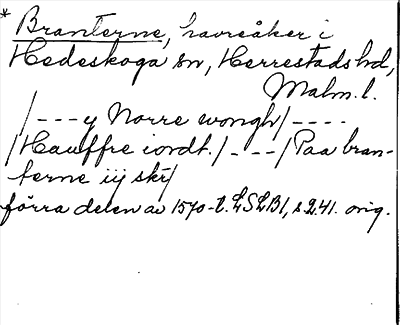 * Branterne, havreåker i
Hedeskoga sn, Herrestads hd,
Malm. l.
/---y Norre wongh/----
/Hauffre iordt./----/Paa bran-
terne iij skr/
förra delen av 1570-t. LSLB1, s 241. orig.